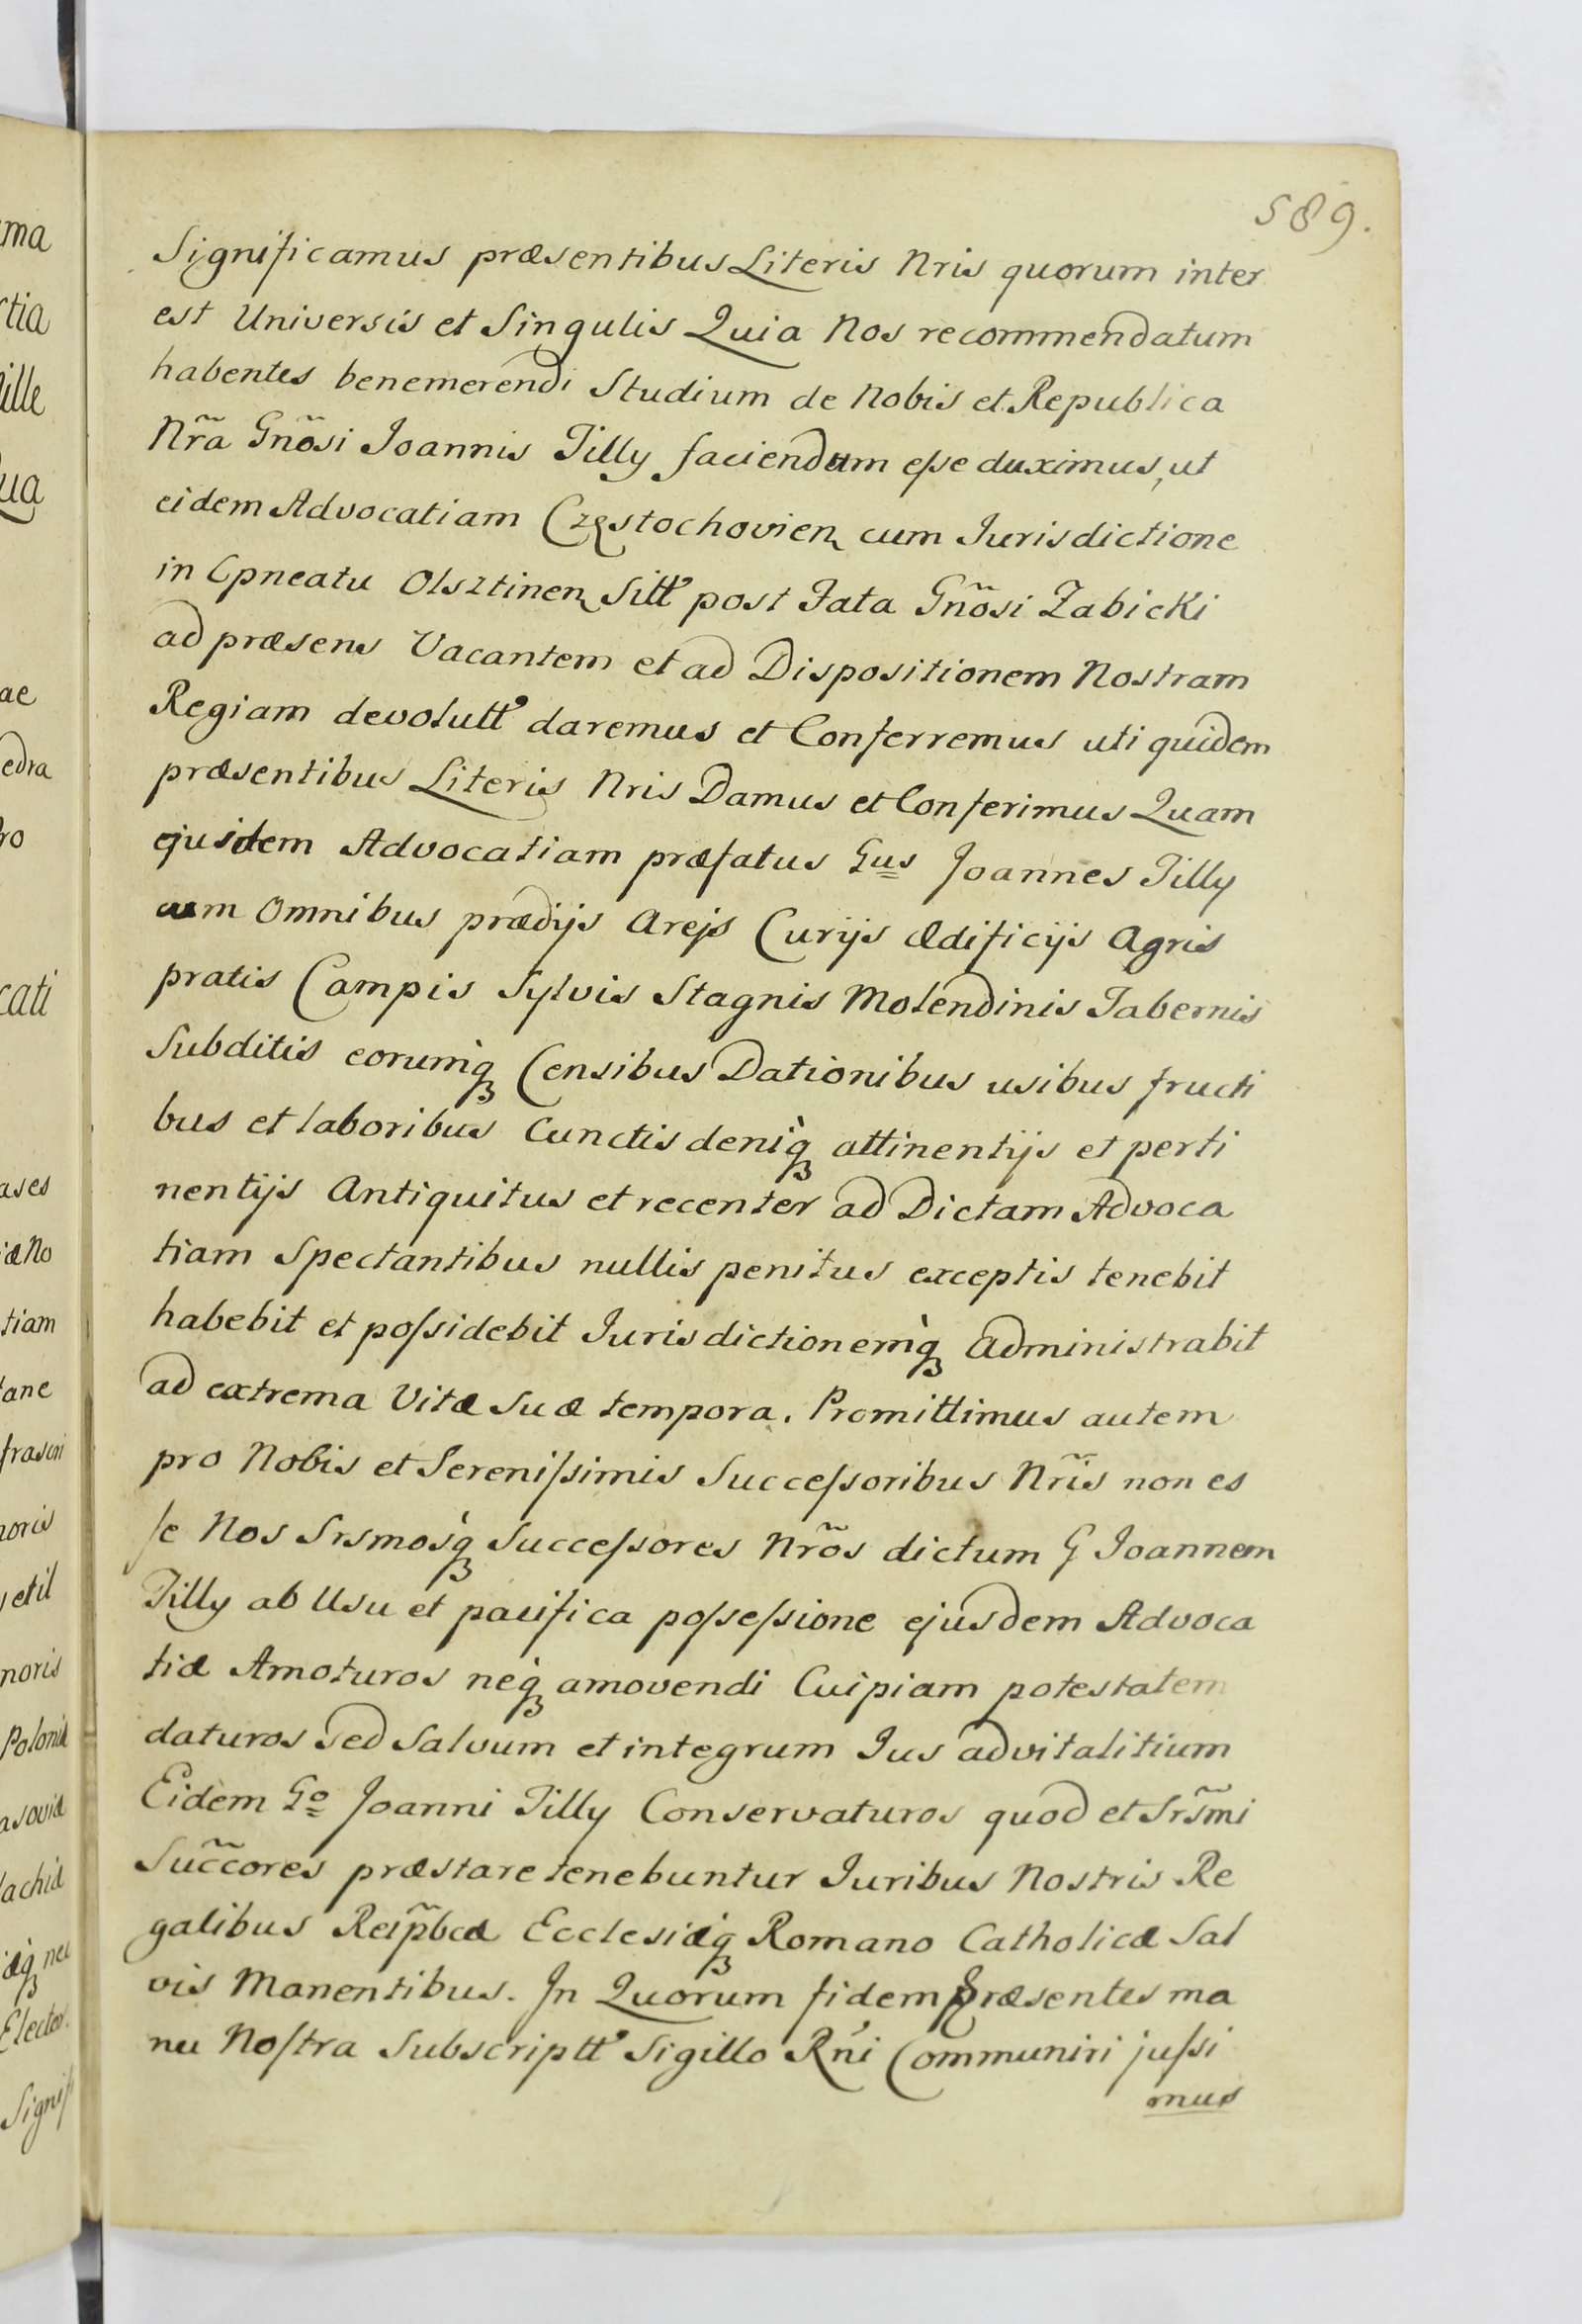 589.
Significamus præsentibus Literis Nris quorum inter
est Universis et Singulis Quia Nos recommendatum
habentes benemerendi Studium de Nobis et Republica
Nr̃a Gnõsi Joannis Tilly faciendum eſse duximus, ut
eidem Advocatiam Częstochovien cum Jurisdictione
in Cpneatu Olsztinen Sitt° post Fata Gnõsi Zabicki
ad præsens Vacantem et ad Dispositionem Nostram
Regiam devolutt° daremus et Conferremus uti quidem
præsentibus Literis Nris Damus et Conferimus Quam
ejusdem Advocatiam præfatus Gus Joannes Tilly
cum Omnibus prædijs Arejs Curijs Ædificijs Agris
pratis Campis Sylvis Stagnis Molendinis Tabernis
Subditis eorumq́ꝫ Censibus Dationibus usibus fructi
bus et laboribus Cunctis deniq́ꝫ attinentijs et perti
nentijs Antiquitus et recenter ad Dictam Advoca
tiam Spectantibus nullis penitus exceptis tenebit
habebit et poſsidebit Jurisdictionemq́ꝫ Administrabit
ad extrema Vitæ Suæ tempora. Promittimus autem
pro Nobis et Sereniſsimis Succeſsoribus Nr̃is non es
ſe Nos Srsmosq́ꝫ Succeſsores Nrõs dictum G Joannem
Tilly ab Usu et pacifica poſseſsione ejusdem Advoca
tiæ Amoturos neq́ꝫ amovendi Cuipiam potestatem
daturos Sed Salvum et integrum Jus advitalitium
Eidem Go Joanni Tilly Conservaturos quod et Srs̃mi
Succ̃ores præstare tenebuntur Juribus Nostris Re
galibus Reip̃bcæ Ecclesiæq́ꝫ Romano Catholicæ Sal
vis Manentibus. In Quorum fidem Præsentes ma
nu Noſtra Subscriptt° Sigillo Rńi Communiri juſsi
mus